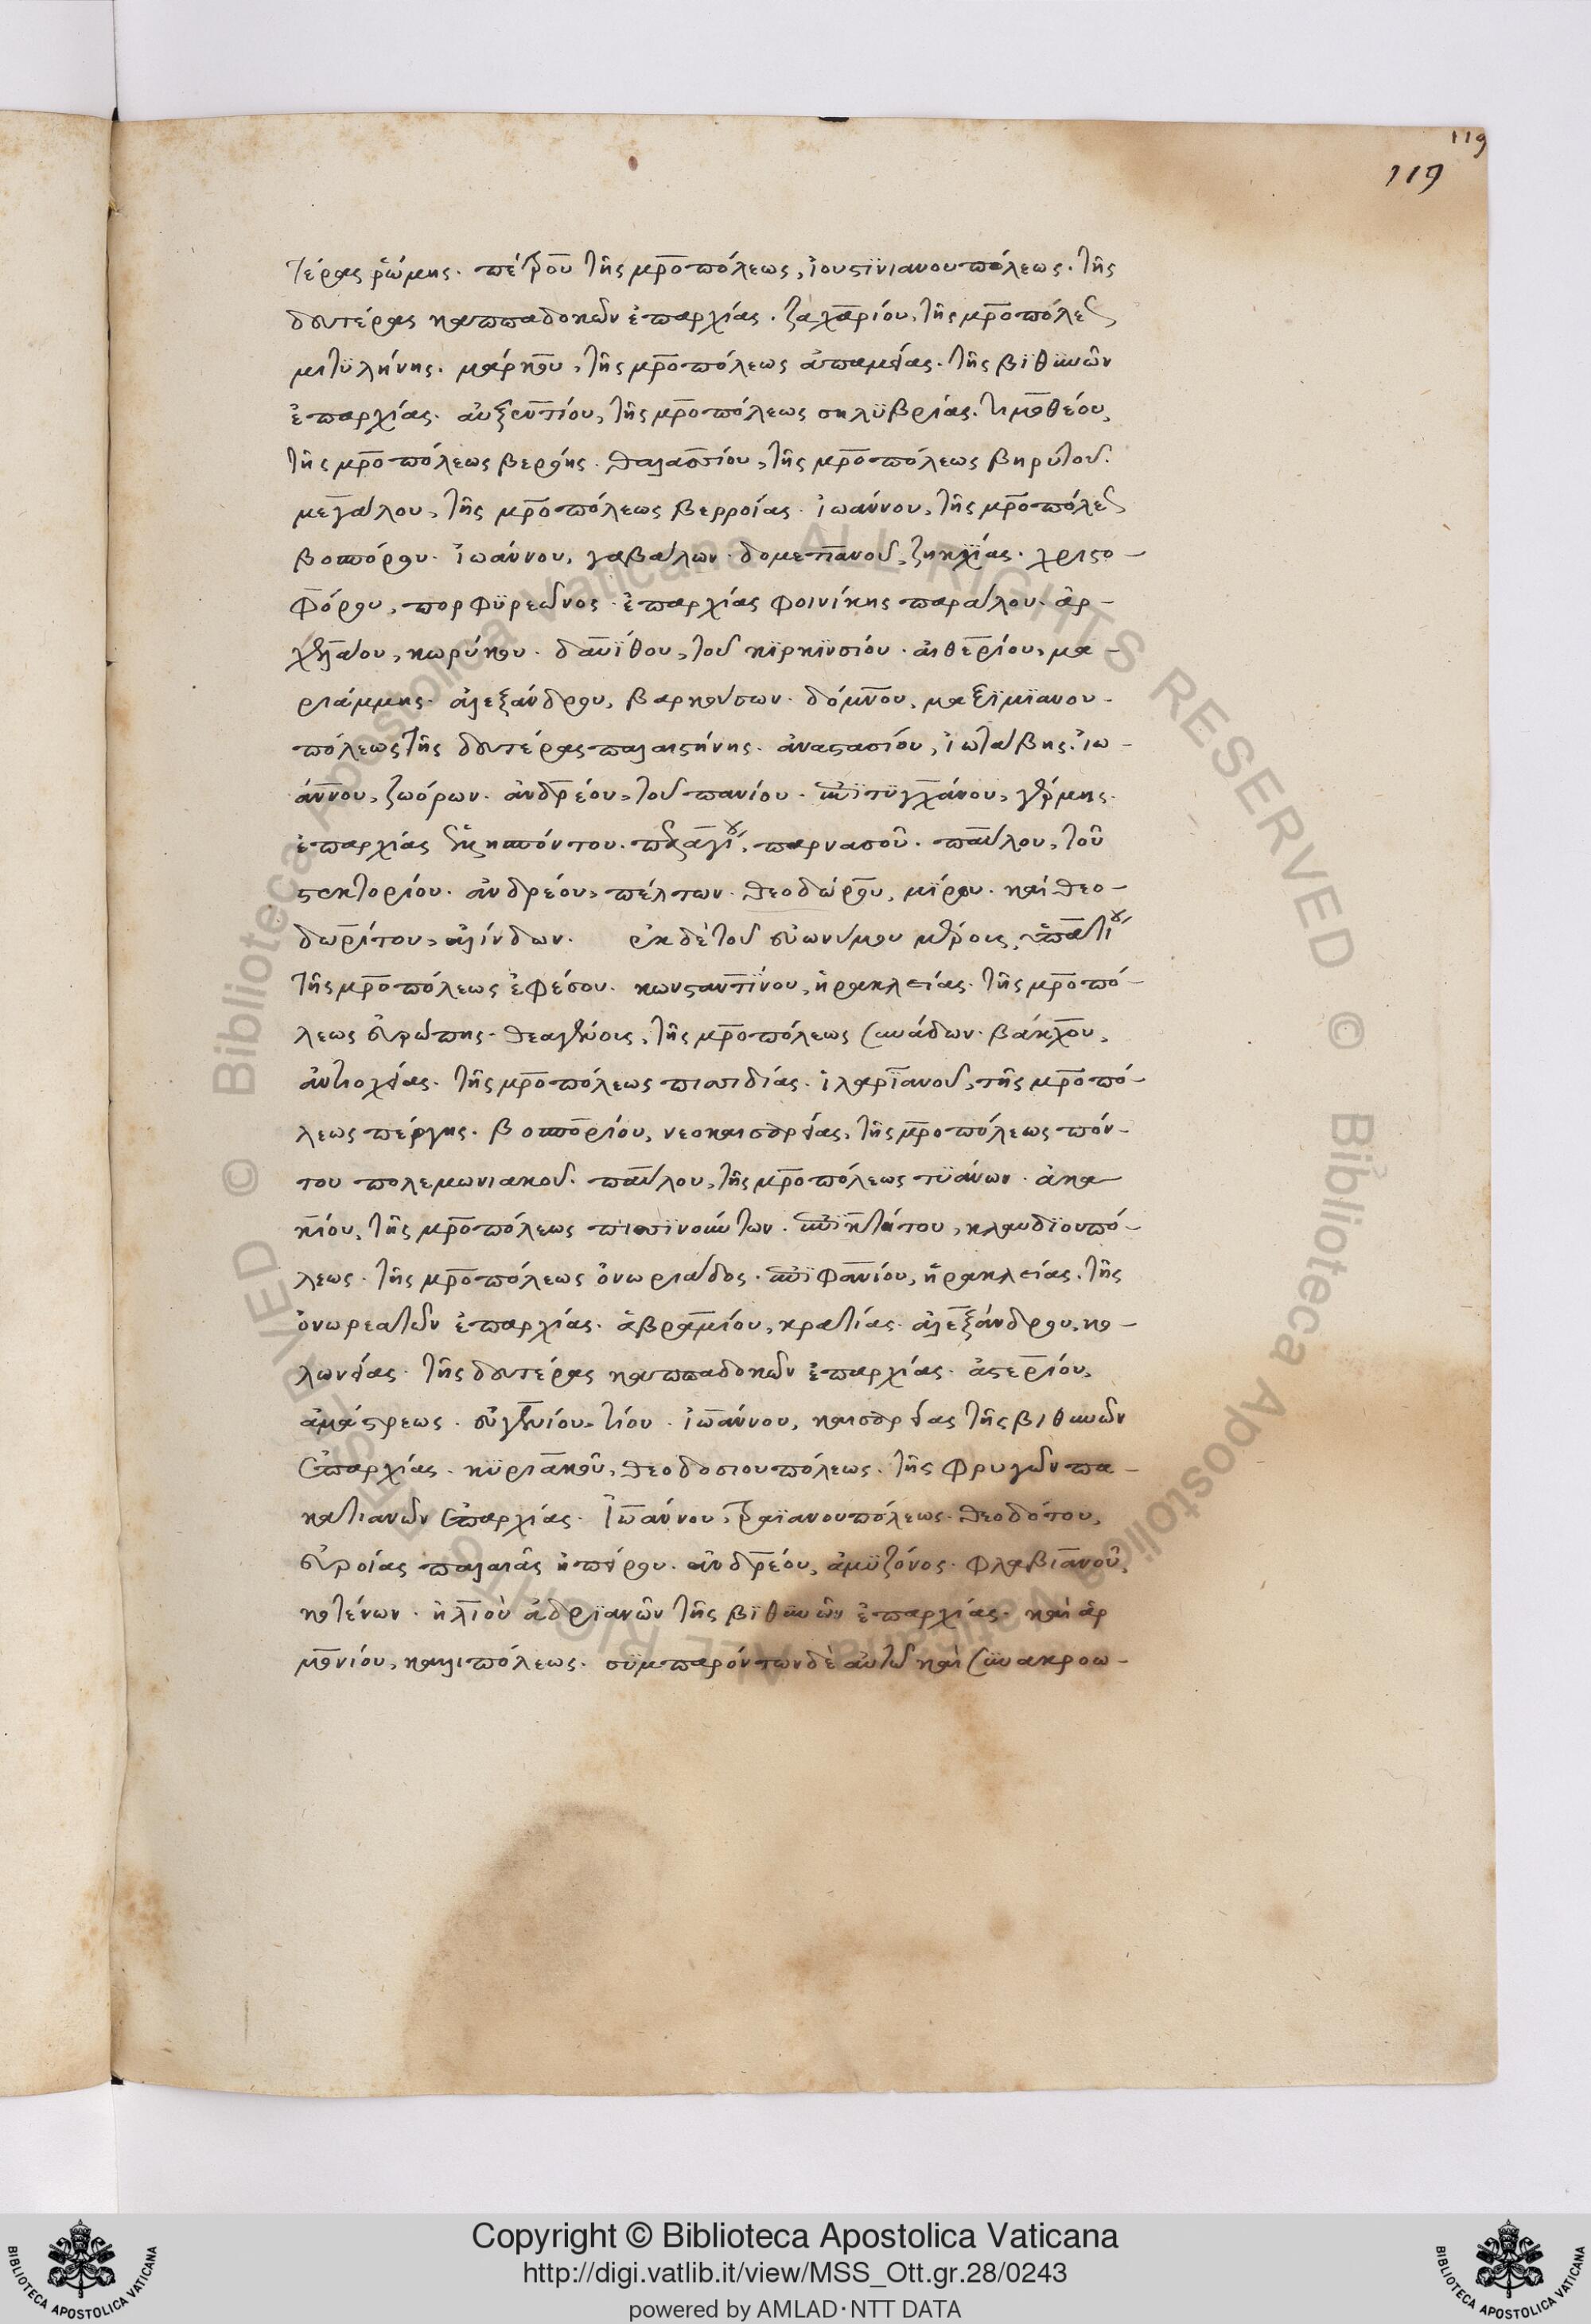 119
119
τέρας ῥώμης. πέτρου τῆς μροπόλεως, ἰουστϊνιανουπόλεως. τῆς
δευτέρας καππαδοκῶν ἐπαρχίας. ζαχαρίου, τῆς μροπόλε
μιτϋλήνης. μάρκου, τῆς μροπόλεως ἀπαμείας. τῆς βϊθϋνῶν
ἐπαρχίας. αὐξεντίου, τῆς μροπόλεως σηλϋβρίας. τιμοθέου,
τῆς μροπόλεως βερόης. θαλασσίου, τῆς μροπόλεως βηρύτου.
μεγάλου, τῆς μροπόλεως βερροίας. ἰωάννου, τῆς μροπόλε
βοσπόρου. ἰωάννου, γαβάλων. δομετιανοῦ, ζηκχίας. χριστο-
φόρου, πορφϋρεῶνος. ἐπαρχίας φοινίκης παράλου. ἀρ-
χελάου, κωρύκου. δαυΐθου, τοῦ κϊρκϊνσίου. αἰθερίου, μα-
ριάμμης. ἀλεξάνδρου, βαρκούσων. δόμνου, μαξϊμϊανου-
πόλεως τῆς δευτέρας παλαιστήνης. ἀναστασίου, ἰωτάβης. ἰω-
άννου, ζωόρων. ἀνδρέου, τοῦ πανίου. ἐπϊτϋγχάνου, γέρμης.
ἐπαρχίας ἑλλησπόντου. πελαγί, παρνασοῦ. παύλου, τοῦ
στεκτορίου. ἀνδρέου, πέλτων. θεοδώρου, μίρου. καὶ θεο-
δωρίτου, ἀλίνδων. ἐκ δὲ τοῦ εὐωνύμου μέρους, ὑπατί
τῆς μροπόλεως ἐφέσου. κωνσταντΐνου, ἡρακλείας. τῆς μροπό-
λεως εὐρώπης. θεαγένους, τῆς μροπόλεως συνάδων. βάκχου,
ἀντιοχείας. τῆς μροπόλεως πισιδίας. ἱλαρϊανοῦ, τῆς μροπό-
λεως πέργης. βοσπορίου, νεοκαισαρείας, τῆς μροπόλεως πόν-
του πολεμωνιακοῦ. παύλου, τῆς μροπόλεως τϋάνων. ἀκα
κίου, τῆς μροπόλεως πισϊνούντων. ἐπϊκτήτου, κλαυδϊουπό-
λεως. τῆς μροπόλεως ὀνωριάδος. ἐπϊφανίου, ἡρακλείας. τῆς
ὀνωρεατῶν ἐπαρχίας. ἀβραμίου, κρατίας. ἀλεξάνδρου, κο-
λωνείας. τῆς δευτέρας καππαδοκῶν ἐπαρχίας. ἀστερίου,
ἀμάστρεως. εὐγενίου, τίου. ἰωάννου, καισαρείας τῆς βιθυνῶν
ἐπαρχίας. κϋριακοῦ, θεοδοσιουπόλεως. τῆς φρυγῶν πα-
κατιανῶν ἐπαρχίας. ἰωάννου, τραϊανουπόλεως. θεοδότου,
εὐροίας παλαιᾶς ἠπείρου. ἀνδρέου, ἀμϋζόνος. φλαβιανοῦ,
κοτένων. ἡλιοὺ ἀδρϊανῶν τῆς βϊθϋνῶν ἐπαρχίας. καὶ ἁρ
μονίου, καλιπόλεως. σϋμπαρόντων δὲ αὐτῶ καὶ συνακροω-
Copyright © Biblioteca Apostolica Vaticana
http://digi.vatlib.it/view/MSS_Ott.gr.28/0243
powered by AMLAD·NTT DATA